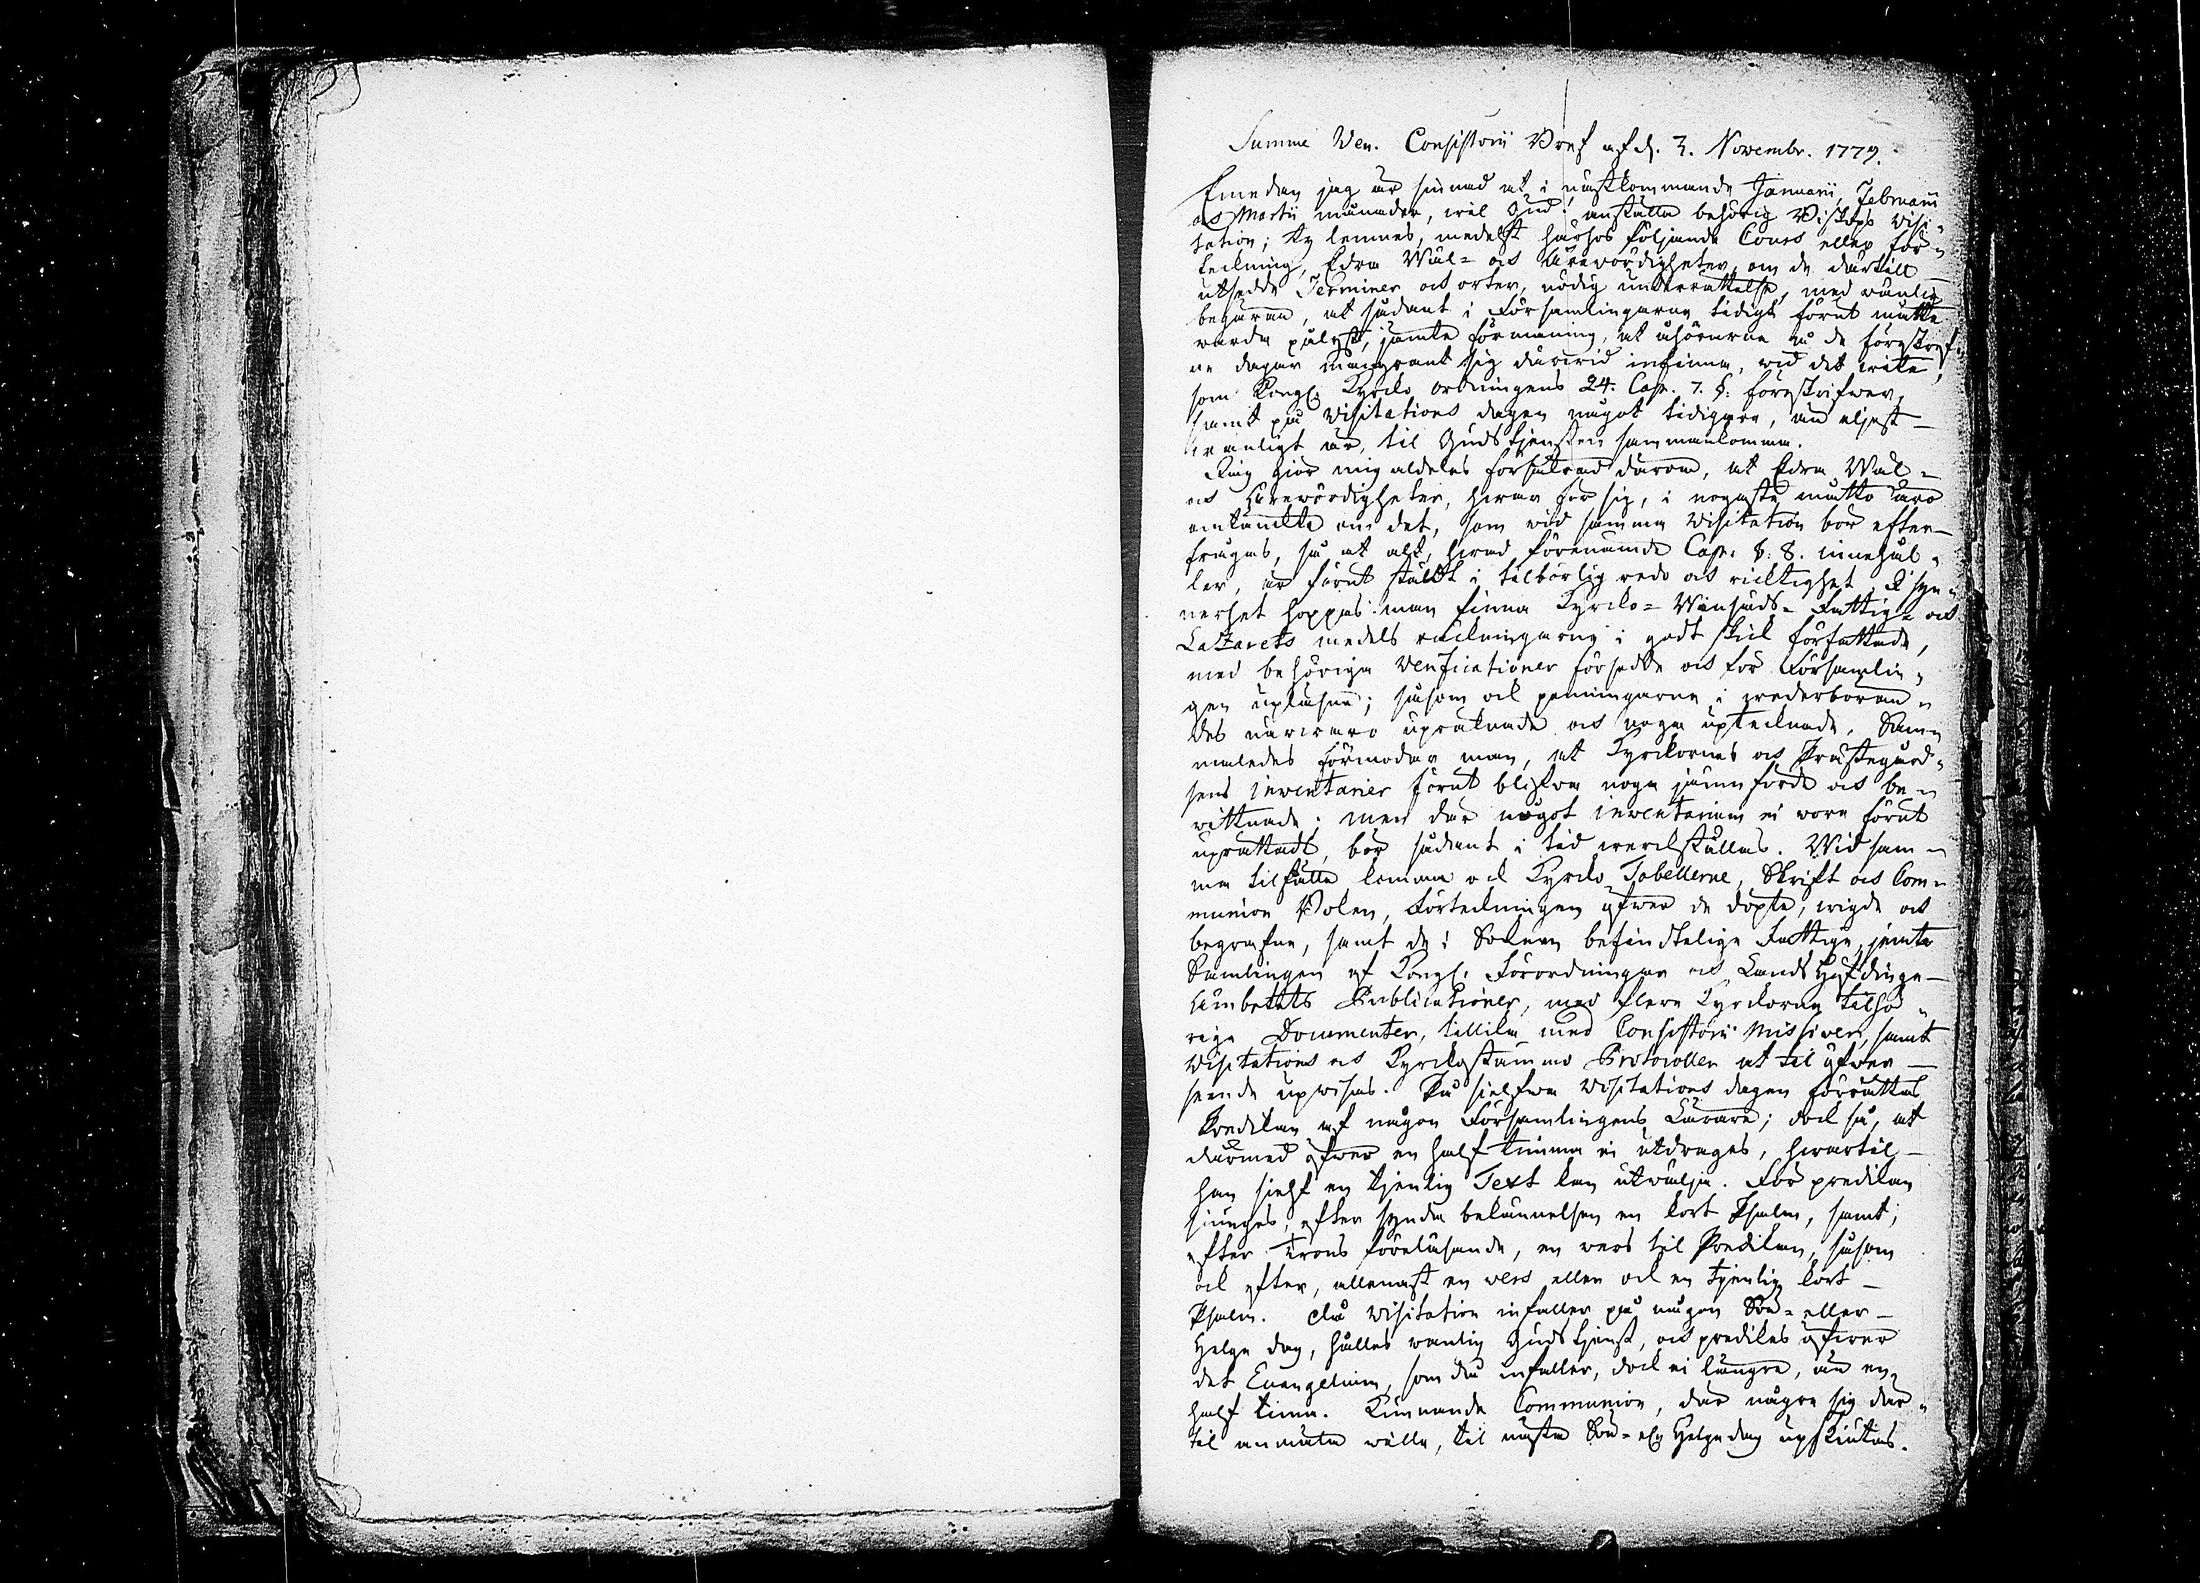 Summe Ven. Consistorii Bref af d. 3. Novembr. 1779.
Emedan jag är sinnad at i nästkommande Januarii, Februarii
och Martii månader, wil Gud! anställa behörig Biskops Visi-
tation; ty lemnes, medelst härhos följande Cours eller för-
teckning, Edra Wäl- och Ärewördigheter, om de därtill
utsedde Terminer och orter, nödig underrättelse, med wänlig
begäran, at sådant i Församlingarna tidigt förut måtte
warda pålyst, jämte förmaning, at åhörarne på de föreskrif-
ne dagar mangrant sig därwid infinna, wid det wite,
som Kongl. Kyrcko ordningens 24. Cap. 7. §. föreskrifwer,
samt på Visitations dagen något tidigare, än eljest
wanligt är, til Gudstjensten sammankomma.
Jag giör mig aldeles försäkrad därom, at Edra Wäl-
och Ärewördigheter, hwar för sig, i nogaste måtto äro
omtänkte om det, som wid samma Visitation bör efter-
frågas, så at alt, hwad förenämde Cap. §. 8. innehål-
ler, är förut stäldt i tilbörlig redo och richtighet. I syn-
nerhet hoppas man finna Kyrcko- Winsäds- Fattig- och
Lazarets medels räckningarna i godt skick författade,
med behöriga Verificationer försedde och för Församlin-
gen upläsne; såsom ock penningarna i wederböran-
des närwaro upräknade och noga uptecknade. Sam-
maledes förmodar man, at Kyrckornes och Prästegård-
sens inventarier förut blifwa noga jämnförde och be-
wittnade; men där något inventarium ei wore förut
uprättadt, bör sådant i tid werckställas. Wid sam-
ma tilfälle komma ock Kyrcko Tabellerne, Skrift och Com-
munion Boken, Förteckningen öfwer de döpte, wigde och
begrafne, samt de i Socknen befindtelige Fattige, jemte
Samlingen af Kongl. Förordningar och Lands Höfdinge-
Embetets Publicationer, med flera Kyrckorna tilhö-
riga Documenter, tillika med Consistorii Missiver, samt
Visitations och Kyrckostämmo Protocoller at til öfwer-
seende upwisas. På sielfwa Visitations dagen förrättas
Predikan af någon Församlingens Lärare; dock så, at
därmed öfwer en half timma ei utdrages, hwartil
han sielf en tjenlig Text kan utwälja. För predikan
siunges, efter synda bekännelsen en kort Psalm, samt,
efter Trons föreläsande, en vers til Predikan, såsom
ock efter, allenast en vers eller ock en tjenlig kort
Psalm. Når Visitation infaller på någon Sön- eller
Helge dag, hålles wanlig Gudstjenst, och predikas öfwer
det Evangelium, som då infaller, dock ei längre, än en
half tima. Kunnande Communion, där någre sig där-
til anmäla wille, til nästa Sön- ell. Helgedag upskiutas.